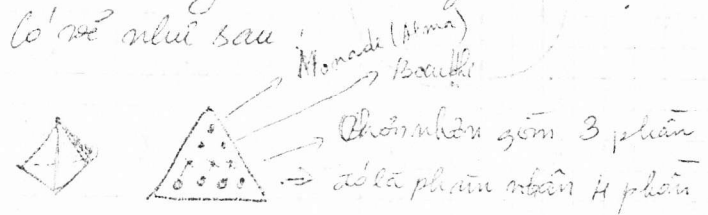 Có vẽ như sau :
Monade (Atma)
Bouddhi
Chơn nhơn gồm 3 phần
đó là phàm nhân 4 phần